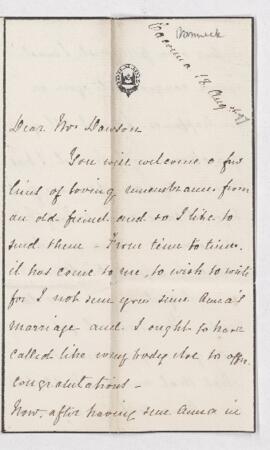 Tacoma 18. Aug
Dear Mrs Dawson
You will welcome a few
lines of loving remembrance from
an old friend and so I like to
send them - From time to time,
it has come to me, to wish to write
for I not seen you since Anna's
marriage and I ought to have
called like everybody else to offer
congratulations -
Now, after having seen Anna in